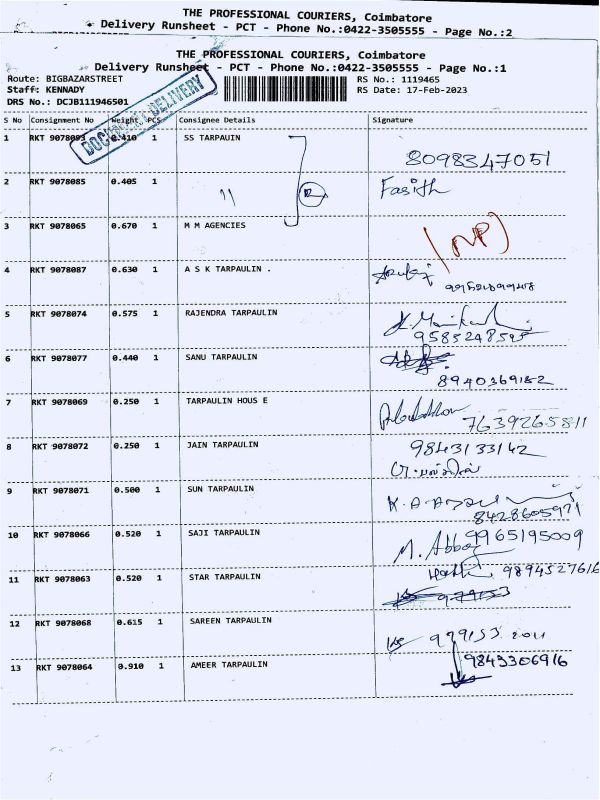 THE PROFESSIONAL COURIERS, Coimbatore
Delivery Runsheet - PCT - Phone No.:0422-3505555 - Page No.:2
THE PROFESSIONAL COURIERS, Coimbatore
Delivery Runsheet - PCT - Phone No.:0422-3505555 - Page No.:1
Route: BIGBAZARSTREET
RS No.: 1119465
Staff: KENNADY
RS Date: 17-Feb-2023
DRS No.: DCJB111946501
DOCUMENT DELIVERY
S No Consignment No Weight PCS Consignee Details Signature
1 RKT 9078093 0.410 1 SS TARPAUIN
8098347051
2 RKT 9078085 0.405 1 11
Fasith
3 RKT 9078065 0.670 1 M M AGENCIES
(NP)
4 RKT 9078087 0.630 1 A S K TARPAULIN .
5 RKT 9078074 0.575 1 RAJENDRA TARPAULIN
9585248595
6 RKT 9078077 0.440 1 SANU TARPAULIN
8940369182
7 RKT 9078069 0.250 1 TARPAULIN HOUS E
7639265811
8 RKT 9078072 0.250 1 JAIN TARPAULIN
9843133142
9 RKT 9078071 0.500 1 SUN TARPAULIN
8428605971
10 RKT 9078066 0.520 1 SAJI TARPAULIN
9965195009
M. Abbas
11 RKT 9078063 0.520 1 STAR TARPAULIN
9894527616
12 RKT 9078068 0.615 1 SAREEN TARPAULIN
979153 2011
13 RKT 9078064 0.910 1 AMEER TARPAULIN
9843306916